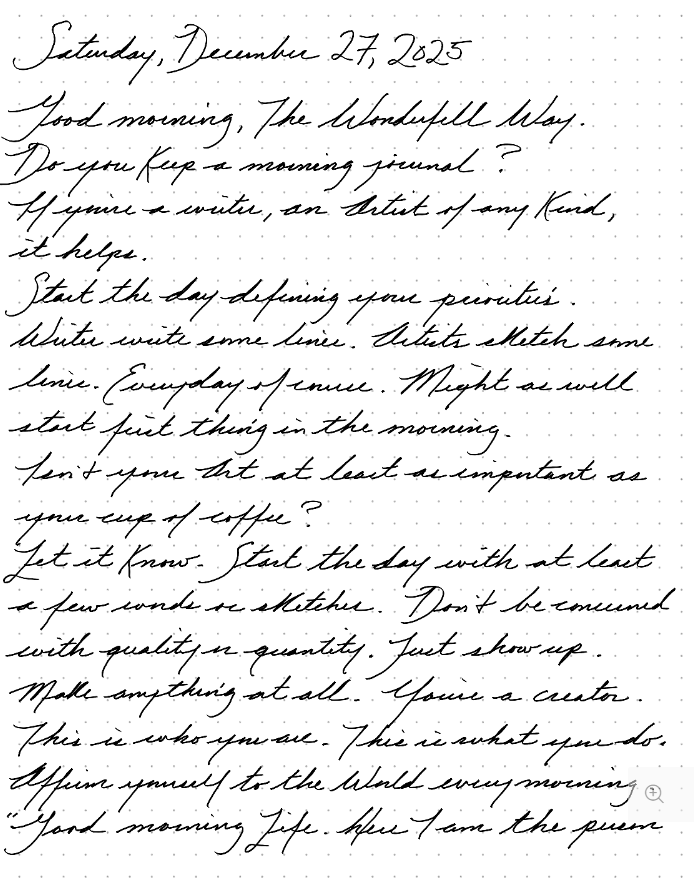 Saturday, December 27, 2025
Good morning, The Wonderfell Way.
Do you Keep a morning journal?
If you're a writer, an Artist of any Kind,
it helps.
Start the day defining your priorities.
Writer write some lines. Artists sketch some
lines. Everyday of course. Might as well
start first thing in the morning.
Isn't your Art at least as important as
your cup of coffee?
Let it Know. Start the day with at least
a few words or sketches. Don't be concerned
with quality or quantity. Just show up.
Make anything at all. You're a creator.
This is who you are. This is what you do.
Affirm yourself to the World every morning
"Good morning Life. Here I am the person